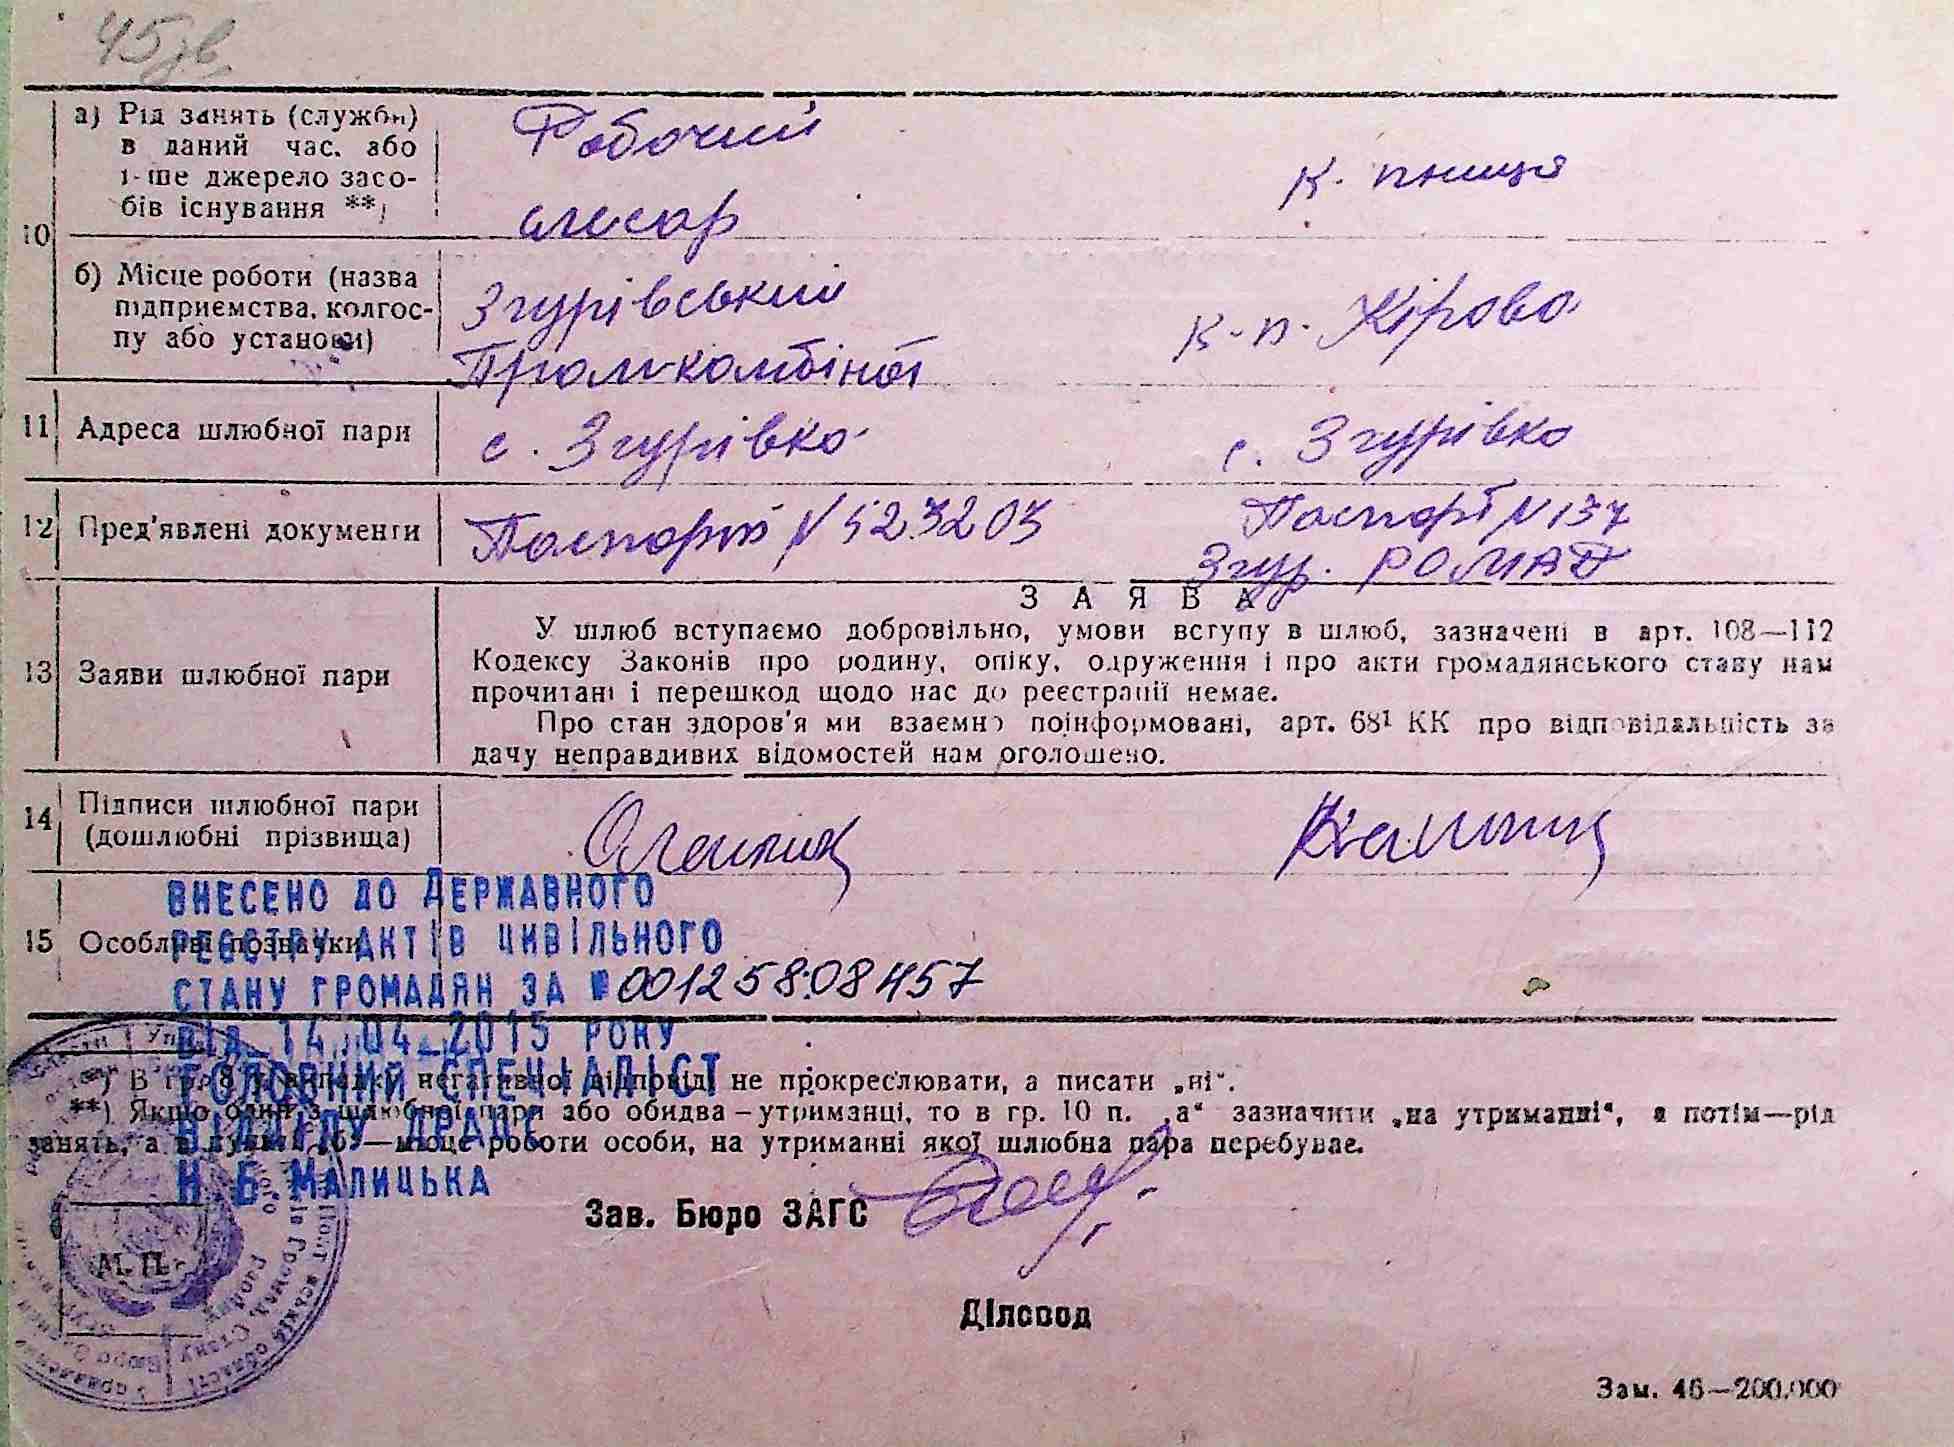 45зв.
10
а) Рід занять (служби)
в даний час, або
інше джерело засо-
бів існування **)
Робочий
слюсар
к. пниця
б) Місце роботи (назва
підприємства, колгос-
пу або установи)
Згурівський
Промкомбінат
к-п. Кірова
11 Адреса шлюбної пари
с. Згурівка
с. Згурівка
12 Пред'явлені документи
Паспорт № 523203
Паспорт № 137
Згур. РОМАД
13 Заяви шлюбної пари
ЗАЯВА
У шлюб вступаємо добровільно, умови вступу в шлюб, зазначені в арт. 108—112
Кодексу Законів про родину, опіку, одруження і про акти громадянського стану нам
прочитані і перешкод щодо нас до реєстрації немає.
Про стан здоров'я ми взаємно поінформовані, арт. 68¹ КК про відповідальність за
дачу неправдивих відомостей нам оголошено.
14 Підписи шлюбної пари
(дошлюбні прізвища)
15 Особливі позначки
ВНЕСЕНО ДО ДЕРЖАВНОГО
РЕЄСТРУ АКТІВ ЦИВІЛЬНОГО
СТАНУ ГРОМАДЯН ЗА № 00125808457
ВІД 14.04.2015 РОКУ
ГОЛОВНИЙ СПЕЦІАЛІСТ
ВІДДІЛУ ДРАЦС
Н.Б МАЛИЦЬКА
*) В гр. 8 у випадку негативної відповіді не прокреслювати, а писати „ні“.
**) Якщо один з шлюбної пари або обидва – утриманці, то в гр. 10 п. „а“ зазначити „на утриманні“, а потім—рід
занять, а в пункті „б“—місце роботи особи, на утриманні якої шлюбна пара перебуває.
Зав. Бюро ЗАГС
М. П.
Діловод
Зам. 46—200.000